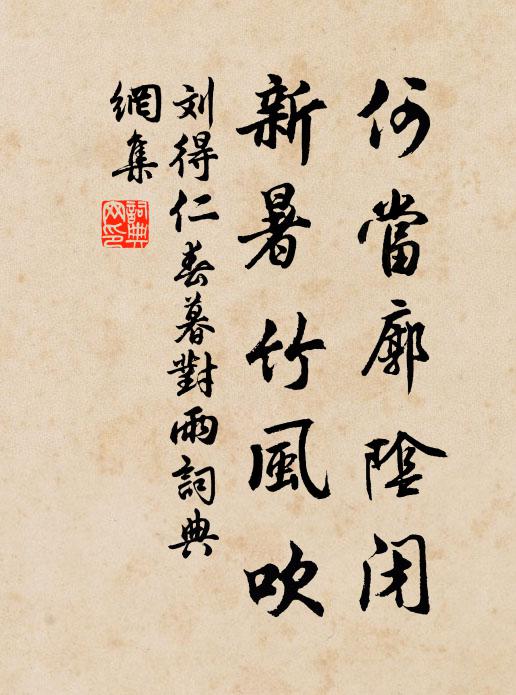 何當廓陰閉
新暑竹風吹
刘得仁春暮對雨詞典
網集
詞典
文印